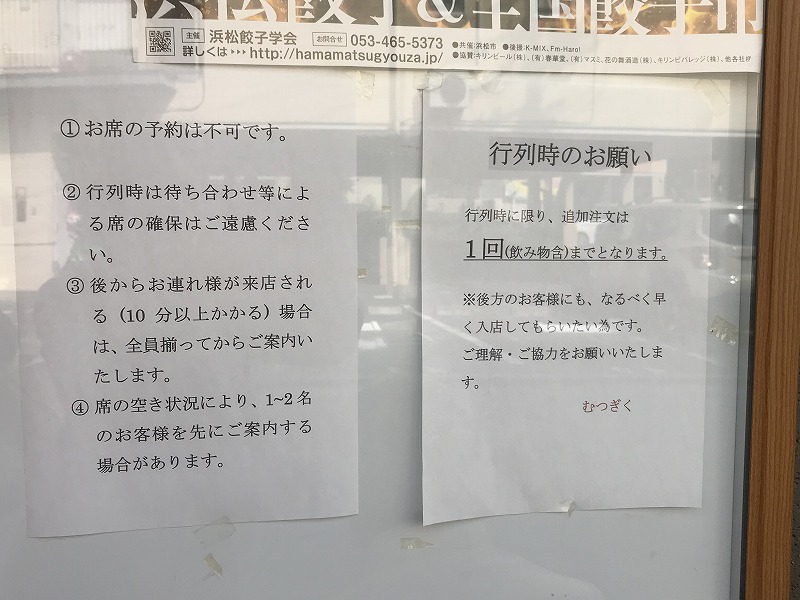 浜松餃子&全国餃子市
主催 浜松餃子学会 お問合せ 053-465-5373
詳しくは>>>http://hamamatsugyouza.jp/
●共催:浜松市 ●後援:K-MIX、Fm-Haro!
●協賛:キリンビール(株)、(有)春華堂、(有)マスミ、花の舞酒造(株)、キリンビバレッジ(株)、他各社様
①お席の予約は不可です。
②行列時は待ち合わせ等によ
る席の確保はご遠慮くださ
い。
③後からお連れ様が来店され
る(10 分以上かかる)場合
は、全員揃ってからご案内い
たします。
④席の空き状況により、1~2 名
のお客様を先にご案内する
場合があります。
行列時のお願い
行列時に限り、追加注文は
1回(飲み物含)までとなります。
※後方のお客様にも、なるべく早
く入店してもらいたい為です。
ご理解・ご協力をお願いいたしま
す。
むつぎく